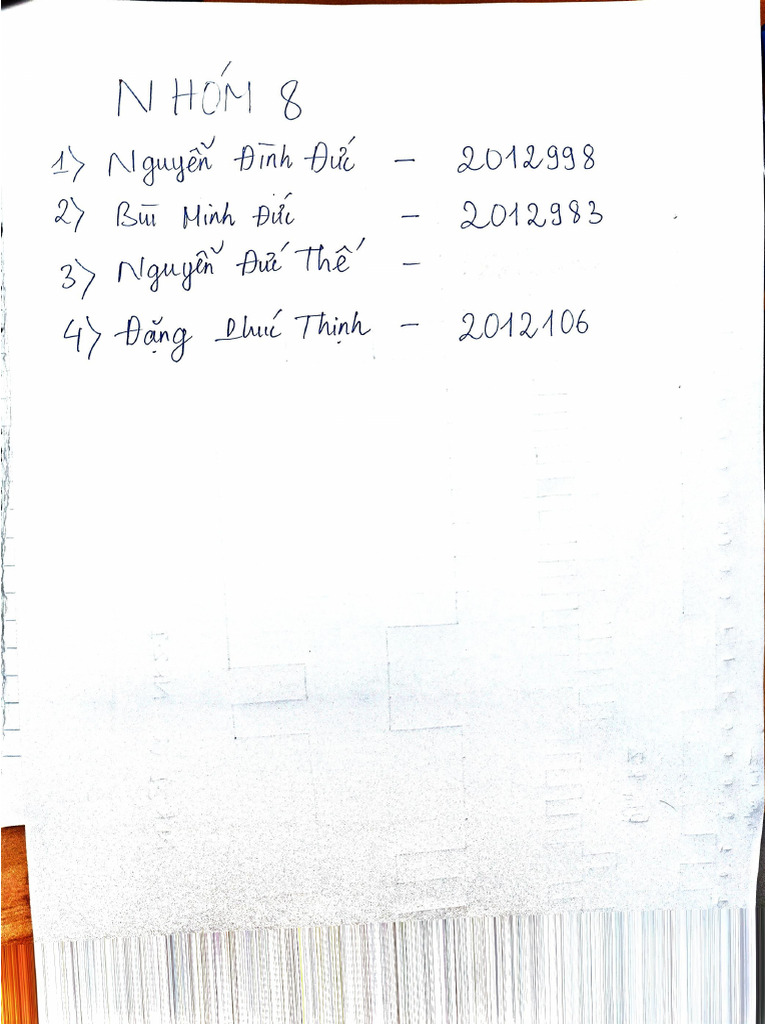 NHÓM 8
1) Nguyễn Đình Đức - 2012998
2) Bùi Minh Đức - 2012983
3) Nguyễn Đức Thế -
4) Đặng Phúc Thịnh - 2012106